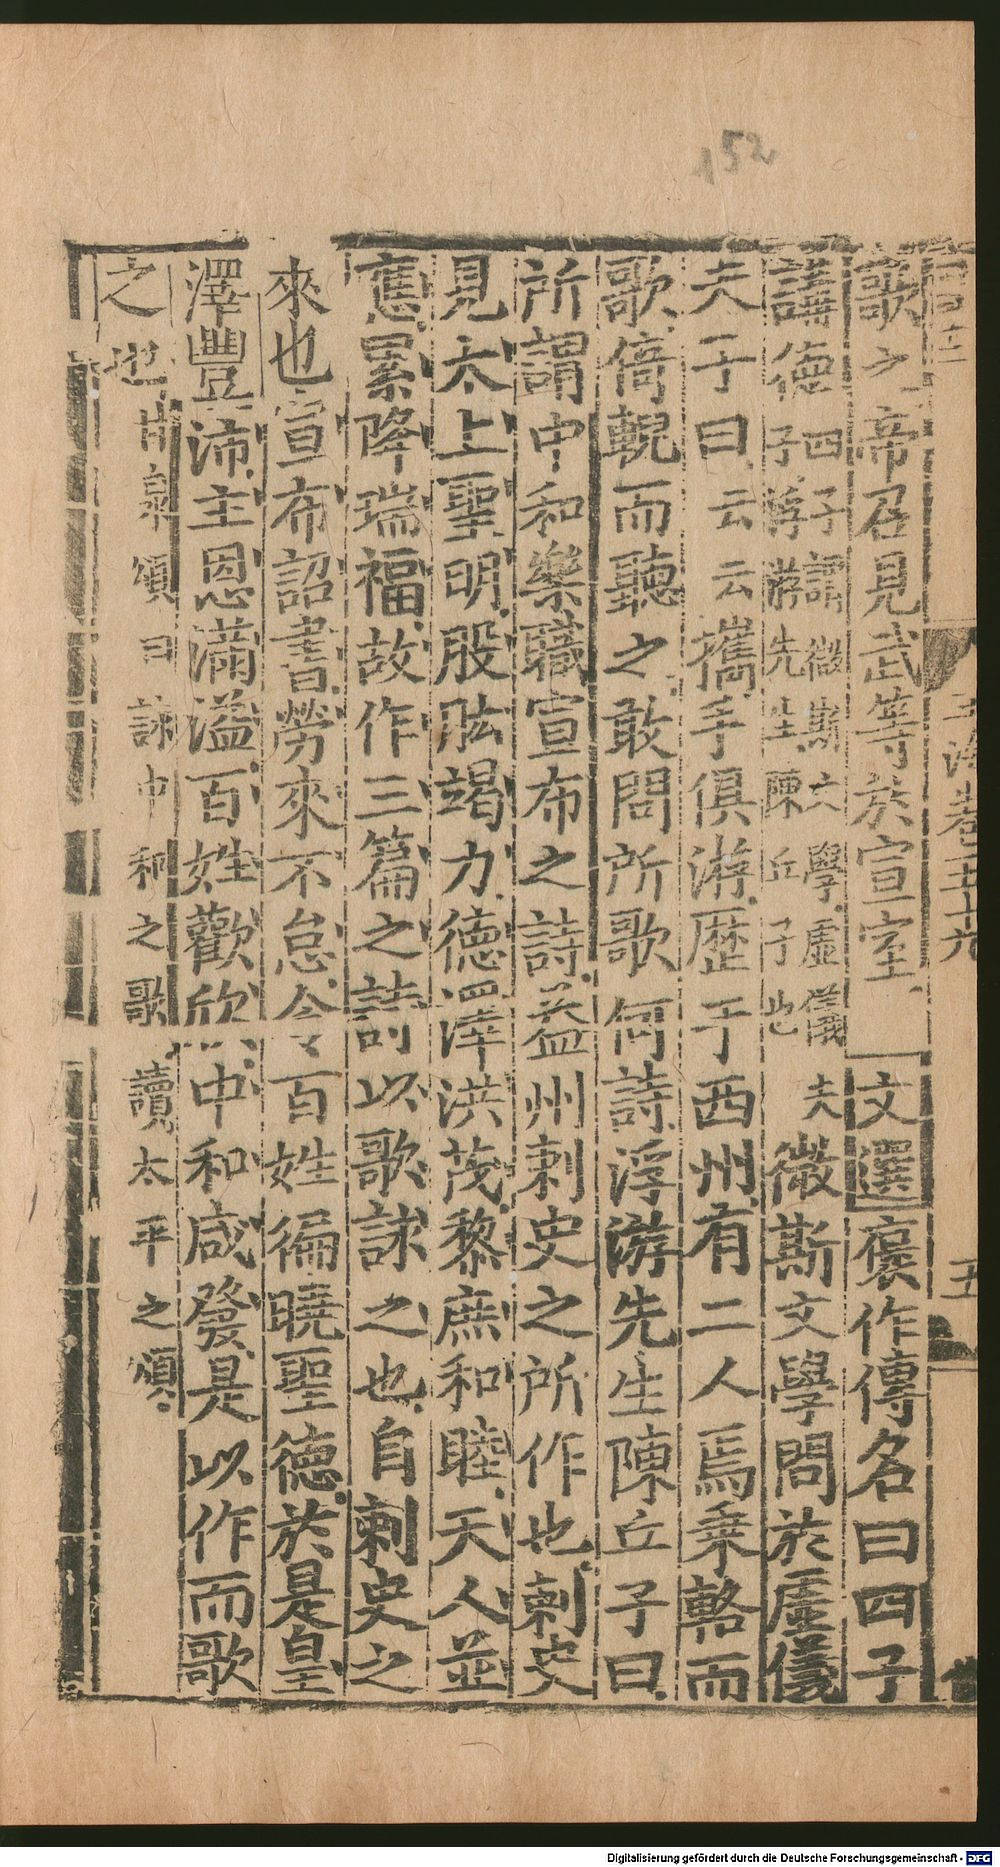 152
玉海卷五十九
五
歌之帝召見武等於宣室文選褒作傳名曰四子
講德四子謂微斯文學虛儀夫子浮游先生陳丘子也微斯文學問於虛儀
夫子曰云云攜手俱游歷于西州有二人焉乗輅而
歌倚輗而聽之敢問所歌何詩浮游先生陳丘子曰
所謂中和樂職宣布之詩益州刺史之所作也刺史
見太上聖明股肱竭力德澤洪茂黎庶和睦天人並
應累降瑞福故作三篇之詩以歌詠之也自刺史之
來也宣布詔書勞來不怠令百姓徧曉聖德於是皇
澤豐沛主恩滿溢百姓歡欣中和感發是以作而歌
之也甘泉頌曰詠中和之歌讀太平之頌
Digitalisierung gefördert durch die Deutsche Forschungsgemeinschaft - DFG